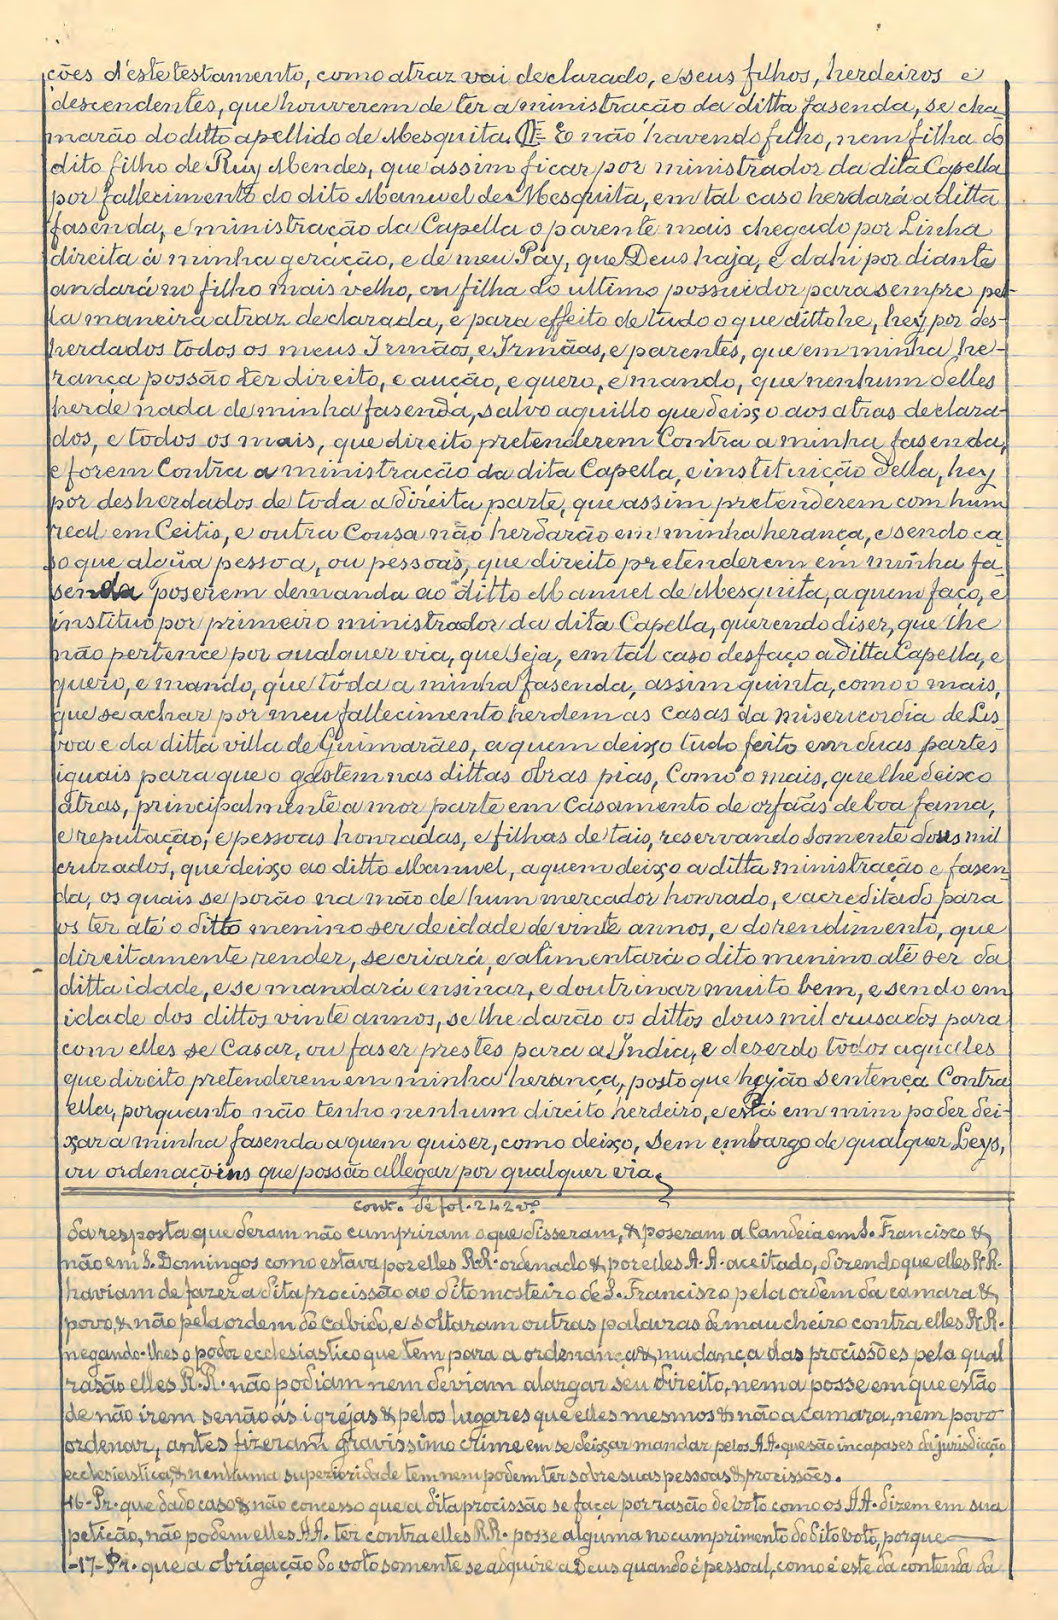 ções d'este testamento, como atraz vai declarado, e seus filhos, herdeiros e
descendentes, que houverem de ter aministração da ditta fasenda, se cha-
marão do ditto apellido de Mesquita. E não havendo filho, nem filha do
dito filho de Ruy Mendes, que assim ficar por ministrador da dita Capella
por fallecimento do dito Manuel de Mesquita, em tal caso herdará a ditta
fasenda, e ministração da Capella o parente mais chegado por Linha
direita á minha geração, e de meu Pay, que Deus haja, e dahi por diante
andará no filho mais velho, ou filha do ultimo possuidor para sempre pe-
la maneira atraz declarada, e para effeito de tudo o que ditto he, hey por des-
herdados todos os meus Irmãos, e Irmãas, e parentes, que em minha he-
rança possão ter direito, e aução, e quero, e mando, que nenhum delles
herde nada de minha fasenda, salvo aquillo que deixo aos atras declara-
dos, e todos os mais, que direito pretenderem Contra a minha fasenda,
e forem Contra a ministração da dita Capella, e instituição della, hey
por desherdados de toda a direita parte, que assim pretenderem com hum
real em Ceitis, e outra Cousa não herdarão em minha herança, e sendo ca-
so que algũa pessoa, ou pessoas, que direito pretenderem em minha fa-
senda poserem demanda ao ditto Manuel de Mesquita, a quem faço, e
instituo por primeiro ministrador da dita Capella, querendo diser, que lhe
não pertence por qualquer via, que seja, em tal caso desfaço a ditta Capella, e
quero, e mando, que toda a minha fasenda, assim quinta, como o mais,
que se achar por meu fallecimento herdem as casas da misericordia de Lis-
boa e da ditta villa de Guimarães, a quem deixo tudo feito em duas partes
iguais para que o gastem nas dittas obras pias, Como o mais, que lhe deixo
atras, principalmente a mor parte em Casamento de orfaãs de boa fama,
e reputação, e pessoas honradas, e filhas de tais, reservando somente dous mil
cruzados, que deixo ao ditto Manuel, a quem deixo a ditta ministração e fasen-
da, os quais se porão na mão de hum mercador honrado, e acreditado para
os ter até o ditto menino ser de idade de vinte annos, e do rendimento, que
direitamente render, se criará, e alimentará o dito menino até ser da
ditta idade, e se mandará ensinar, e doutrinar muito bem, e sendo em
idade dos dittos vinte annos, se lhe darão os dittos dous mil crusados para
com elles se Casar, ou faser prestes para a India, e deserdo todos aquelles
que direito pretenderem em minha herança, posto que hajão sentença Contra
ella, porquanto não tenho nenhum direito herdeiro, e está em mim poder dei-
xar a minha fasenda a quem quiser, como deixo, sem embargo de qualquer Leys,
ou ordenaçoins que possão allegar por qualquer via
cont. de fol. 242 vº
da resposta que deram não cumpriram o que disseram, & poseram a Candeia em S. Francisco &
não em S. Domingos como estava por elles R.R. ordenado & por elles A.A. aceitado, dizendo que elles R.R.
haviam de fazer a dita procissão ao dito mosteiro de S. Francisco pela ordem da camara &
povo, & não pela ordem do cabido, e soltaram outras palavras de mau cheiro contra elles R.R.
negando-lhes o poder ecclesiastico que tem para a ordenança &, mudança das procissões pela qual
rasão elles R.R. não podiam nem deviam alargar seu direito, nem a posse em que estão
de não irem senão ás igrejas & pelos lugares que elles mesmos & não a camara, nem povo
ordenar, antes fizeram gravissimo crime em se deixar mandar pelos A.A. que são incapases da jurisdição
ecclesiastica, & nenhuma superioridade tem nem podem ter sobre suas pessoas & procissões.
16- Pr. que dado caso & não concesso que a dita procissão se faça por rasão de voto como os A.A. dizem em sua
petição, não podem elles A.A. ter contra elles R.R. posse alguma no cumprimento do dito voto, porque
-17- Pr. que a obrigação do voto somente se adquire a Deus quando é pessoal, como é este da contenda da